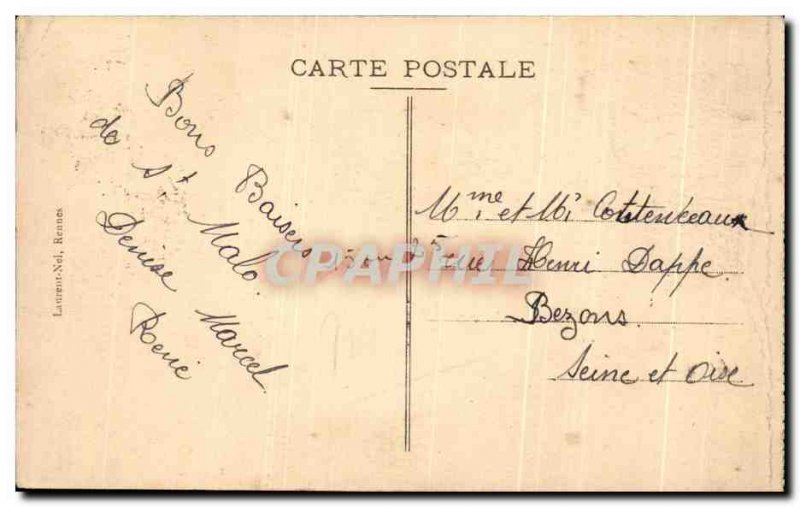 CARTE POSTALE
Bons Baisers
de St Malo.
Denise Marcel
René
Mme et Mr
rue Henri Dappe
Bezons.
Seine et Oise
Laurent-Nel, Rennes
CPAPHIL